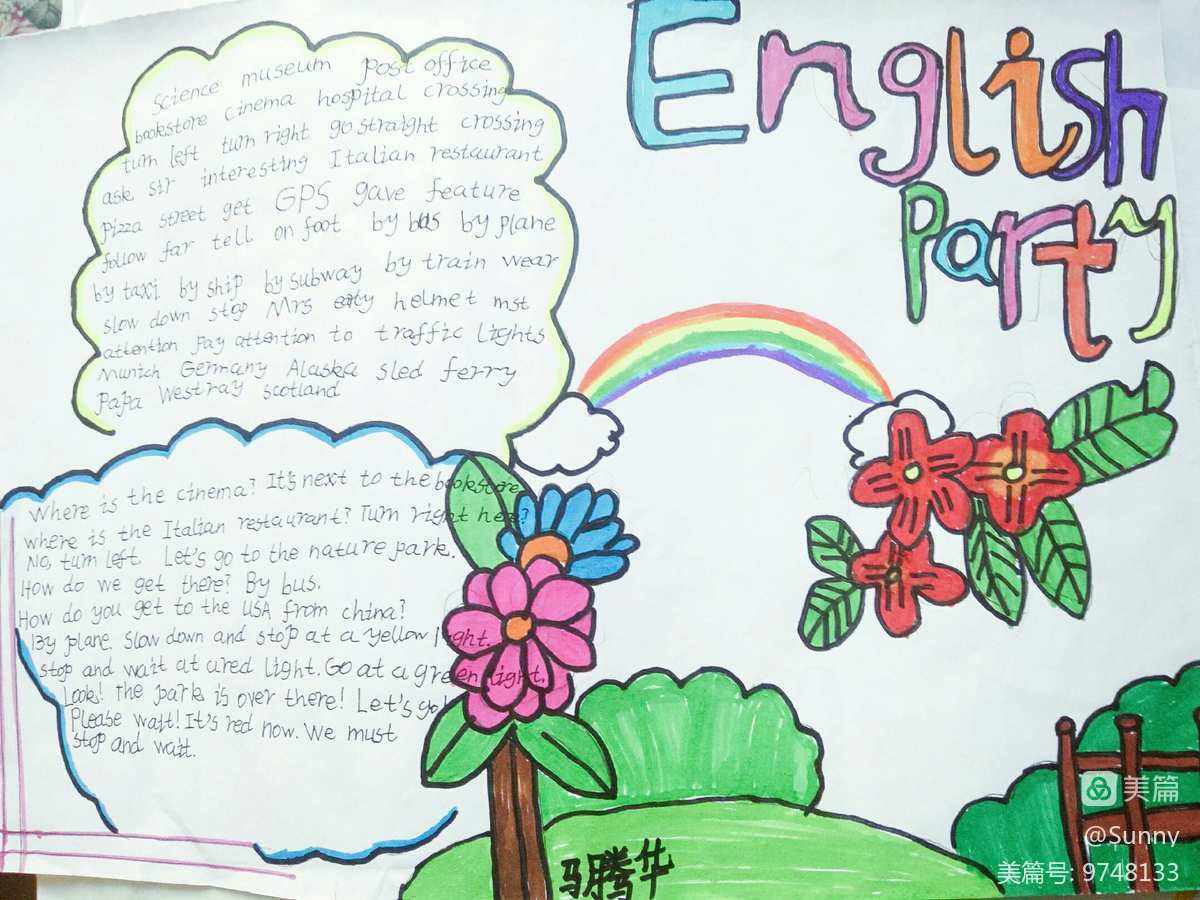 English
Party
Science museum post office
bookstore cinema hospital crossing
turn left turn right go straight crossing
ask sir interesting Italian restaurant
pizza street get GPS gave feature
follow far tell on foot by bus by plane
by taxi by ship by subway by train wear
slow down stop Mrs early helmet mst
attention pay attention to traffic lights
Munich Germany Alaska sled ferry
Papa Westray scotland
Where is the cinema? It's next to the bookstore
where is the Italian restaurant? Turn right here?
No, turn left. Let's go to the nature park.
How do we get there? By bus.
How do you get to the USA from china?
By plane. Slow down and stop at a yellow light.
stop and wait at ared light. Go at a green light.
Look! the park is over there! Let's go!
Please wait! It's red now. We must
stop and wait.
马腾华
美篇
@Sunny
美篇号: 9748133